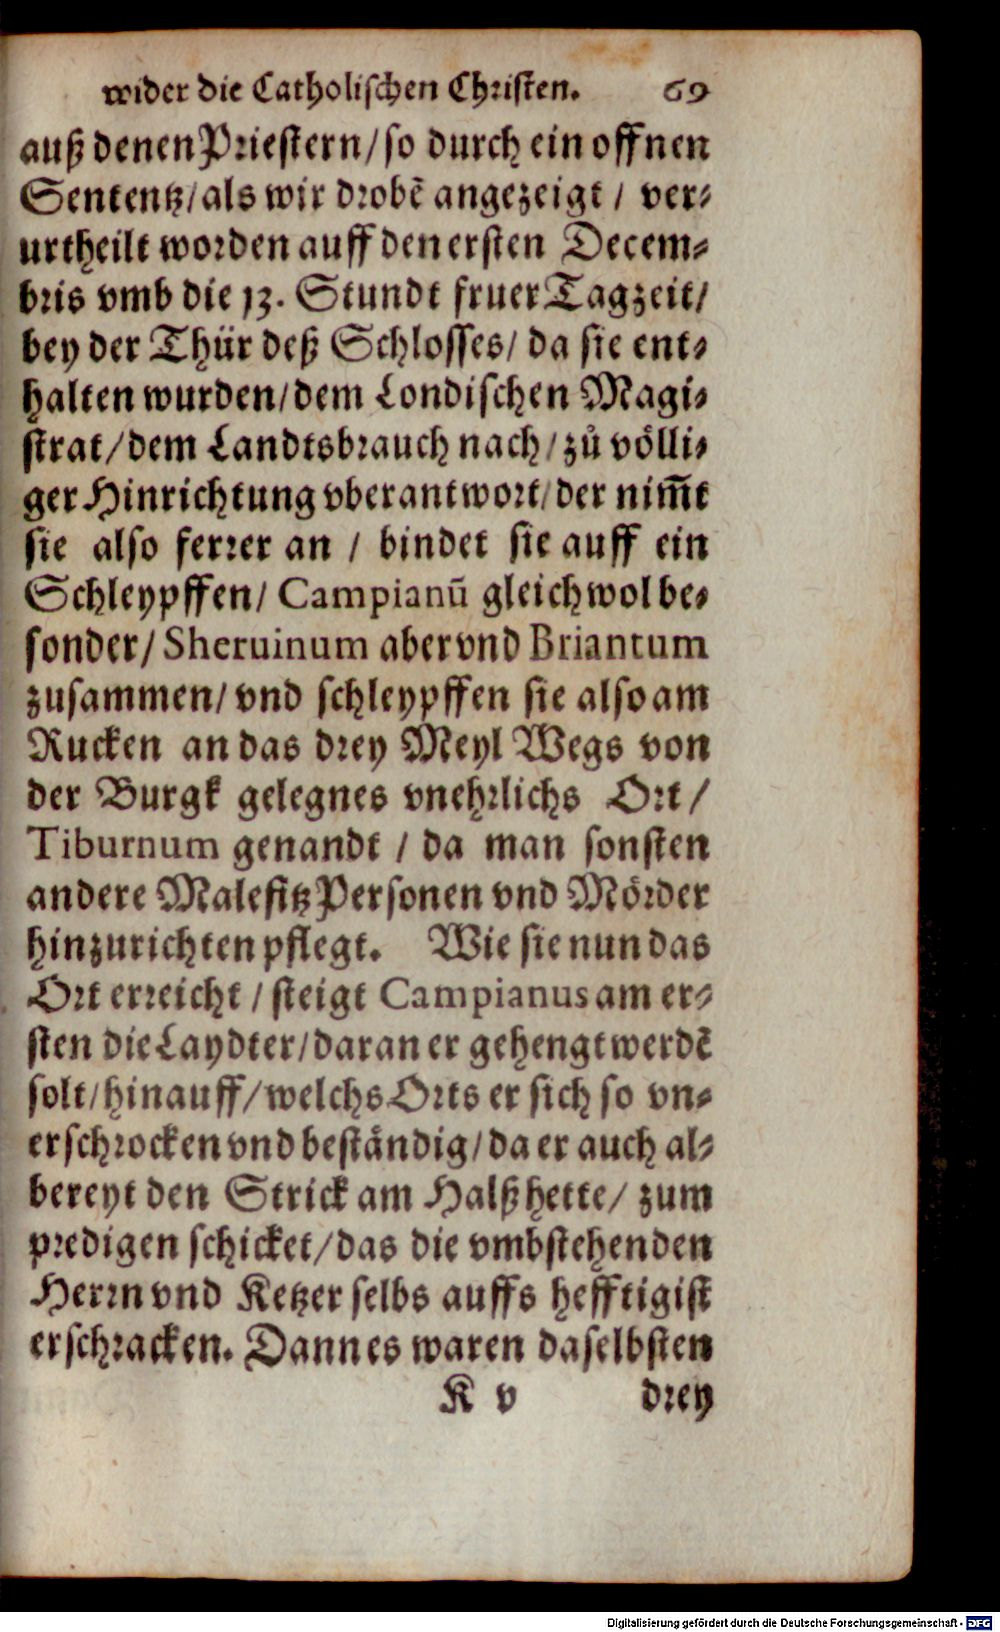 wider die Catholischen Christen. 69
auß denen Priestern/so durch ein offnen
Sententz/als wir drobẽ angezeigt / ver-
urtheilt worden auff den ersten Decem-
bris vmb die 13. Stundt fruer Tagzeit/
bey der Thür deß Schlosses/ da sie ent-
halten wurden/dem Londischen Magi-
strat/dem Landtsbrauch nach/zů völli-
ger Hinrichtung vberantwort/der nim̃t
sie also ferrer an / bindet sie auff ein
Schleypffen/ Campianũ gleichwol be-
sonder/Sheruinum aber vnd Briantum
zusammen/ vnd schleypffen sie also am
Rucken an das drey Meyl Wegs von
der Burgk gelegnes vnehrlichs Ort/
Tiburnum genandt / da man sonsten
andere Malefitz Personen vnd Mörder
hinzurichten pflegt. Wie sie nun das
Ort erreicht / steigt Campianus am er-
sten die Laydter/daran er gehengt werdẽ
solt/hinauff/welchs Orts er sich so vn-
erschrocken vnd beständig/da er auch al-
bereyt den Strick am Halß hette/ zum
predigen schicket/das die vmbstehenden
Herrn vnd Ketzer selbs auffs hefftigist
erschracken. Dann es waren daselbsten
K v drey
Digitalisierung gefördert durch die Deutsche Forschungsgemeinschaft - DFG